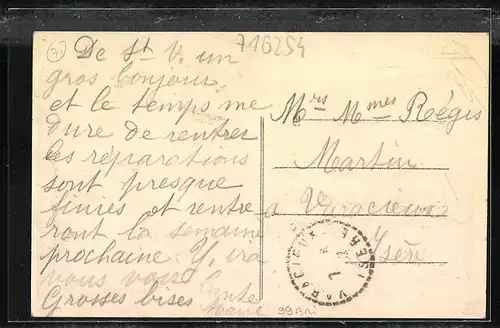 716254
De St V. un
gros bonjour
et le temps me
dure de rentrer
les réparations
sont presque
finies et rentre
ront la semaine
prochaine Y, ira
vous voir
Grosses bises
Mrs Mmes Régis
Martin
a Voracieux
Isère